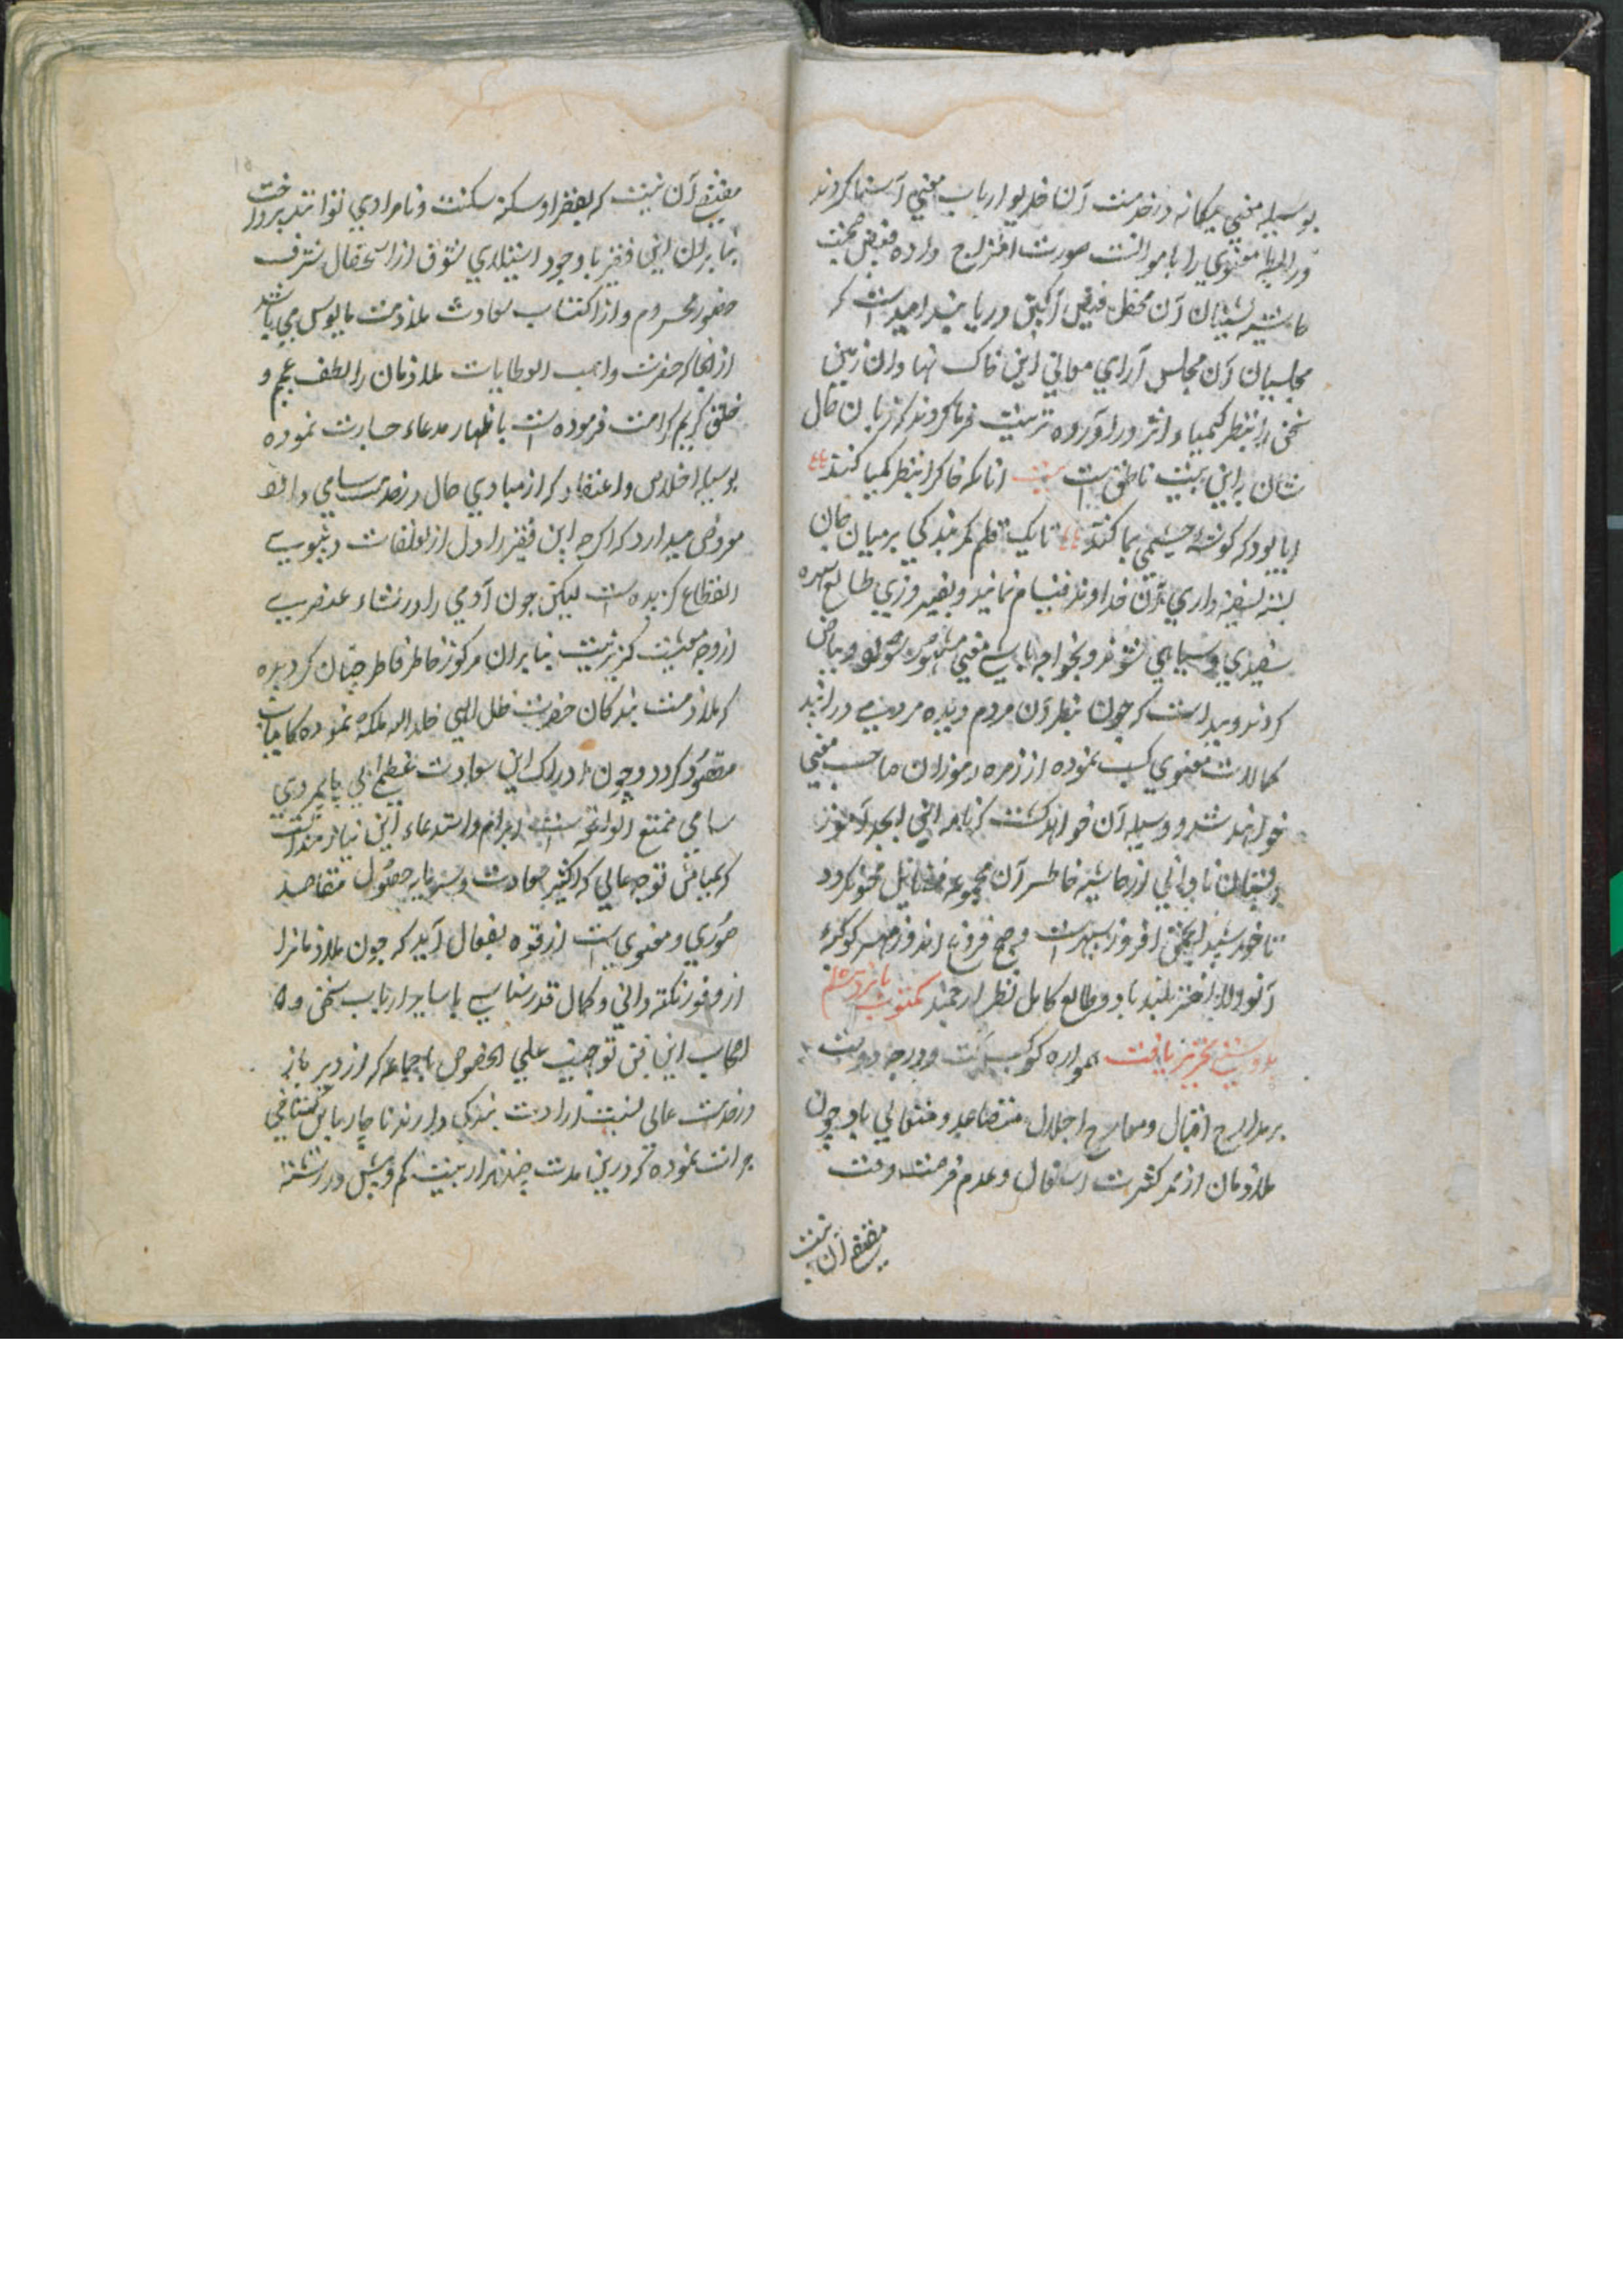 بوسیله معنی بیکانه در خدمت آن خدیو ارباب معنی آشنا کردند
و رابطه معنوی را با موالنت صورت امتزاج داده فیض صحبت
حاشیه نشینان آن محفل فیض آکین دریابند امیدست که
مجلسیان آن مجلس آرای معانی این خاک نهادان زمین
سخن را بنظر کیمیا اثر در آورده تربیت فرما کردند که زبان حال
شان به این بیت ناطق ست بیت انانکه خاک را بنظر کیمیا کنند
ایا بود که کوشه چشمی بما کنند تا یک قلم کمر بندکی بر میان جان
بسته خداوند قیام نمایند و بفیروزی طالع بهره
سفیدی و سیاهی معنی بیاض
کردند و پیداست که چون بنظر آن مردم دیده مردمی در آیند
کمالات معنوی کسب نموده از زمره رموزدان صاحب معنی
خواهند شد و وسیله آن خواهد کشت که نام این ابجد آموز
دبستان نادانی از حاشیه خاطر آن مجموعه فضایل محو نکردد
تا خورشید انجمن افروز سپهرست و صبح فروغ اندوز مهر کوکبه
آن والا اختر بلند باد و طالع کامل نظر ارجمند مکتوب پانزدهم
بدوستی تحریر یافت همواره کوکب بخت و درجه دولت
بر مدارج اقبال و معارج اجلال متصاعد و متعالی باد چون
ملازمان از ممر کثرت اشغال و عدم فرصت وقت
مقتضی آن نیست
مقتضی آن نیست که بفقرا و سکنه مسکنت و نامرادی توانند پرداخت
بنا بران این فقیر با وجود استیلای شوق از استحصال شرف
حضور محروم و از اکتساب سعادت ملازمت مایوس می باشد
از انجا که حضرت واهب العطایات ملازمان را لطف عمیم و
خلق کریم کرامت فرموده است باظهار مدعاء جسارت نموده
بوسیله اخلاص و اعتقاد که از مبادی حال در خدمت سامی دارد
معروض میدارد که اکرچه این فقیر را دل از تعلقات دنیوی
انقطاع کزیده است لیکن چون آدمی را در نشاء عنصری
از وجه معیشت کزیر نیست بنا بران مرکوز خاطر فاطر چنان کردیده
که ملازمت بندکان حضرت ظل الهی خلد الله ملکه نموده کامیاب
مقصود کردد و چون ادراک این سعادت عظمی بی پایمردی
سامی ممتنع الوقوع است ابرام و استدعاء این نیازمند آنست
که بمیامن توجه عالی که اکثیر سعادت و سرمایه حصول مقاصد
صوری و معنوی است از قوه بفعل آید که چون ملازمانرا
از وفور نکته دانی و کمال قدرشناسی با سایر ارباب سخن و
اصحاب این فن توجهیست علی الخصوص با جماعه که از دیر باز
در خدمت عالی نسبت ارادت بندکی دارند ناچار بابی کستاخی
جرات نموده که درین مدت چند هزار بیت کم و بیش در رشته